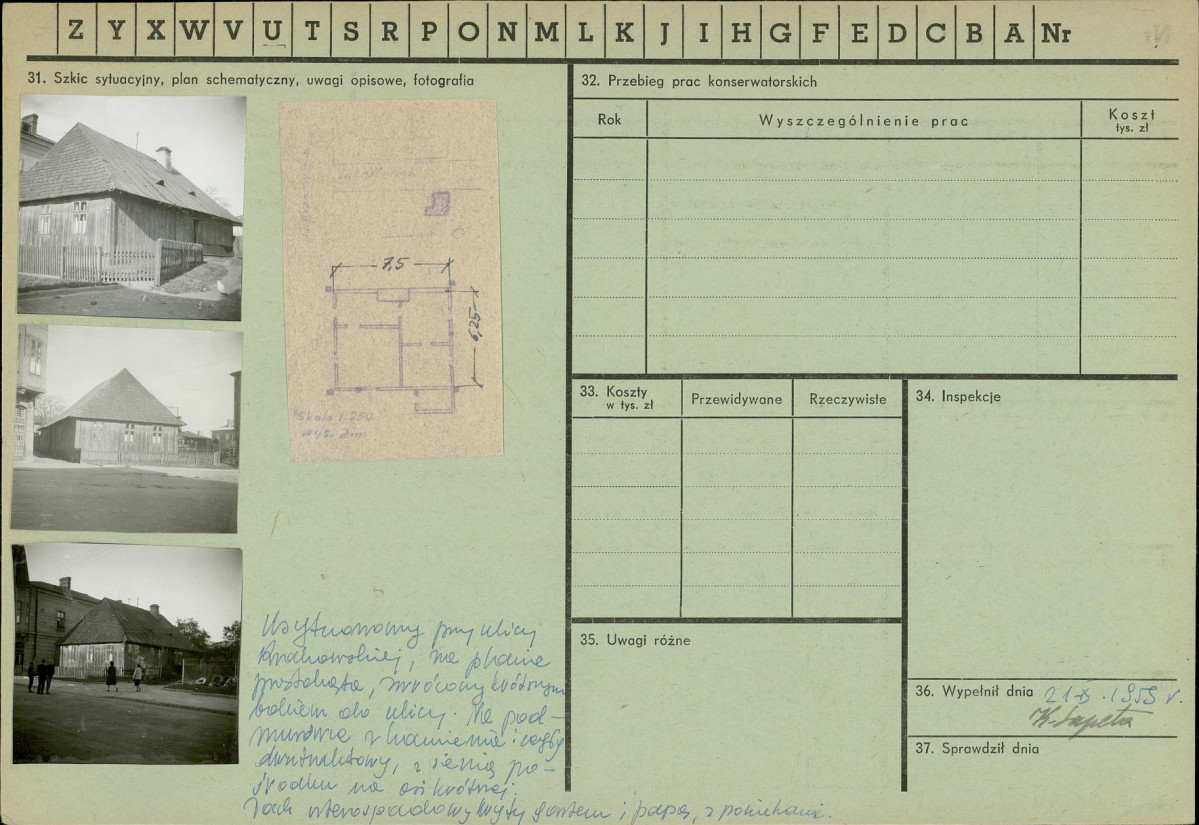 Z Y X W V U T S R P O N M L K J I H G F E D C B A Nr
31. Szkic sytuacyjny, plan schematyczny, uwagi opisowe, fotografia
7,5
6,25
Skala 1:250
wys. 3m
Usytuowany przy ulicy
Krakowskiej, na planie
prostokąta, zwrócony krótszym
bokiem do ulicy. Na pod-
murówce z kamienia i cegły
dwutraktowy, z sienią po-
środku na osi krótszej.
Dach czterospadowy kryty gontem i papą, z
32. Przebieg prac konserwatorskich
Rok
Wyszczególnienie prac
Koszt
tys. zł
33. Koszty
w tys. zł
Przewidywane
Rzeczywiste
34. Inspekcje
35. Uwagi różne
36. Wypełnił dnia 21 X . 1959 r.
37. Sprawdził dnia